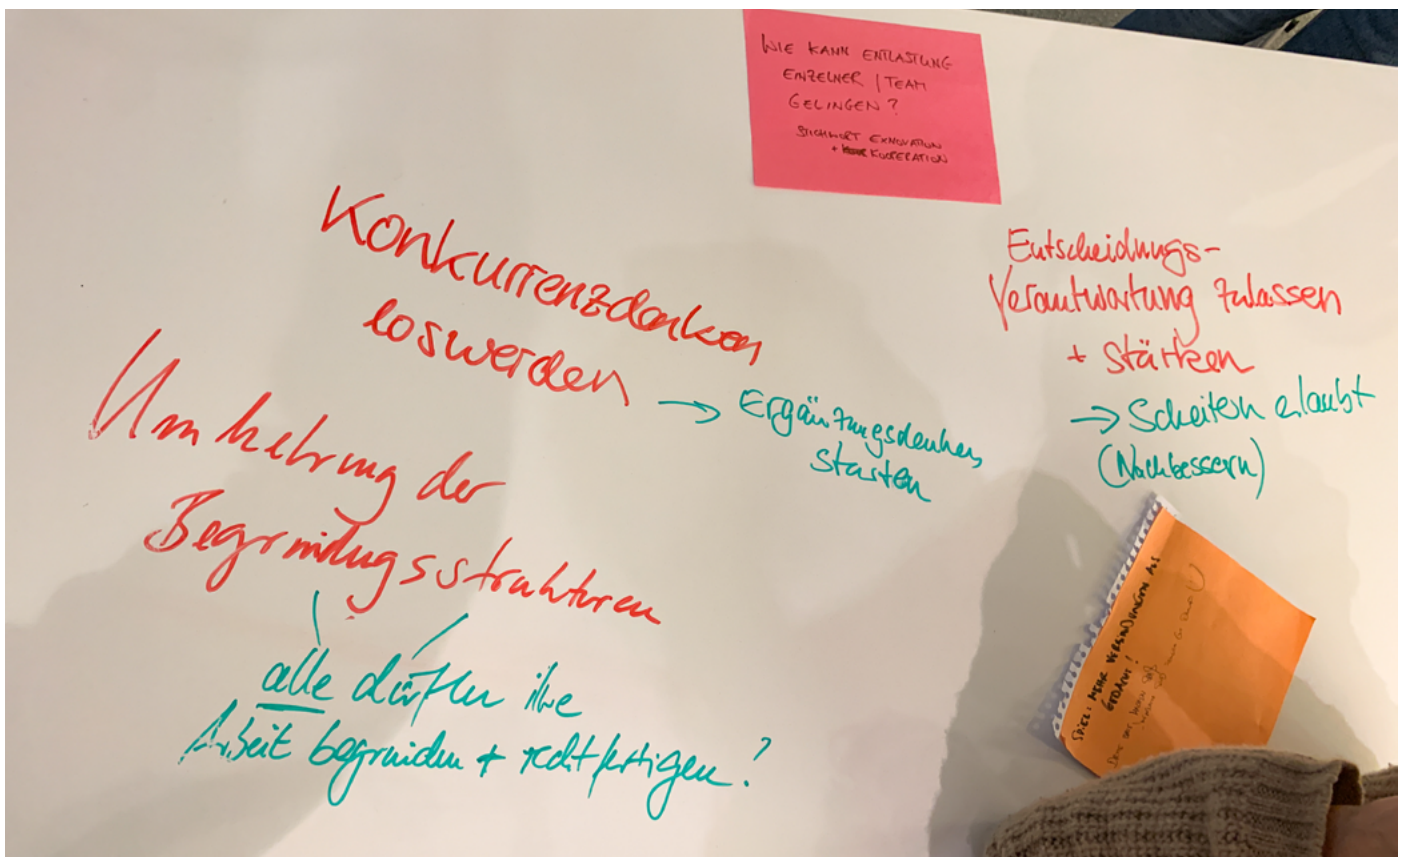 WIE KANN ENTLASTUNG
EINZELNER / TEAM
GELINGEN?
STICHWORT EXNOVATION
+ KOOPERATION
Konkurrenzdenken
loswerden
→ Ergänzungsdenken
starten
Entscheidungs-
Verantwortung zulassen
+ stärken
→ Scheitern erlaubt
(Nachbessern)
Umkehrung der
Begründungsstrukturen
alle dürfen ihre
Arbeit begründen + rechtfertigen?
SPIEL: MEHR VERBINDUNGEN ALS
GEDACHT!